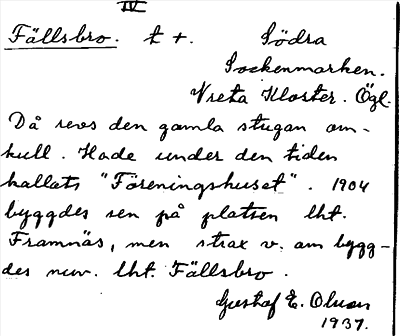 IV
Fällsbro. t +. Södra
Sockenmarken.
Vreta Kloster. Ögl.
Då revs den gamla stugan om-
kull. Hade under den tiden
kallats "Föreningshuset". 1904
byggdes sen på platsen lht.
Framnäs, men strax v. om bygg-
des nuv. lht. Fällsbro.
Gustaf E. Olsson
1937.